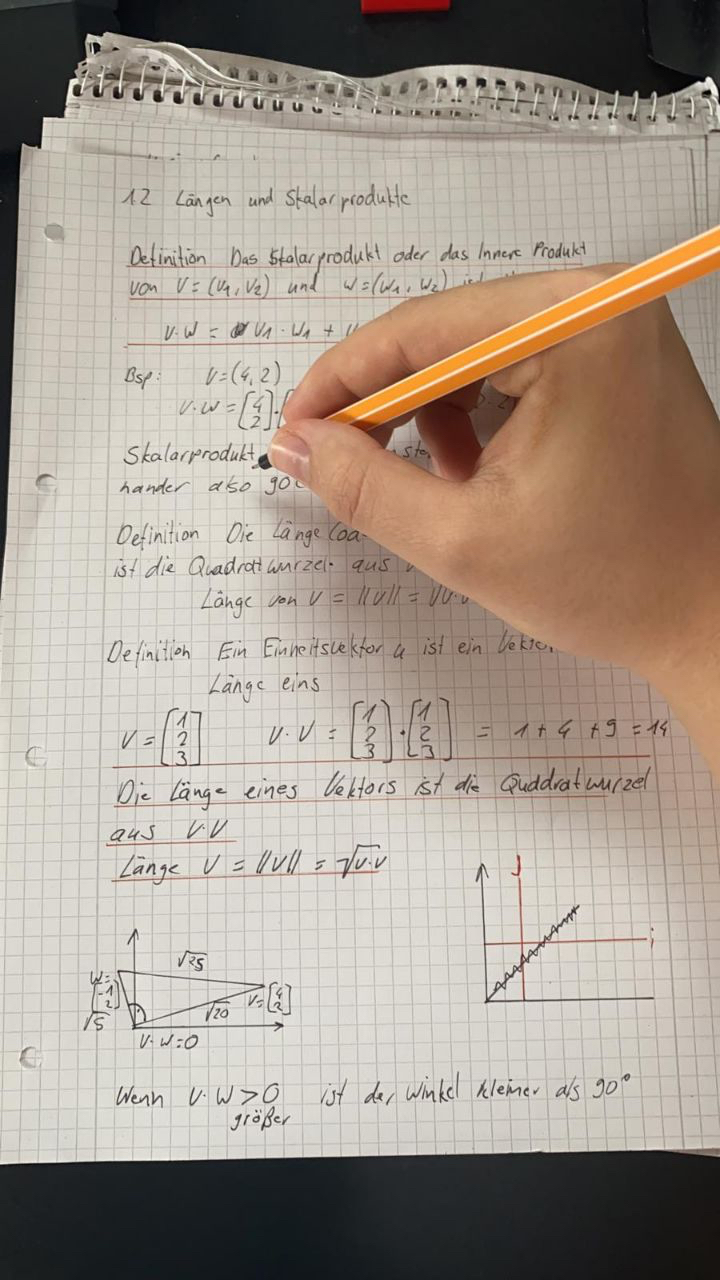 1.2 Längen und Skalarprodukte
Definition Das Skalarprodukt oder das Innere Produkt
von V = (V1, V2) und W = (W1, W2) ist
V·W = V1 · W1 +
Bsp: V=(4,2)
V·W = [4 2] ·
Skalarprodukt
hander also 90
Definition Die Länge
ist die Quadratwurzel aus V
Länge von V = ||V|| = √V·V
Definition Ein Einheitsvektor u ist ein
Länge eins
V = [1 2 3] V·V = [1 2 3] · [1 2 3] = 1 + 4 + 9 = 14
Die Länge eines Vektors ist die Quddratwurzel
aus V·V
Länge V = ||V|| = √V·V
J
i
W=
[-1 2]
√5
√25
√20
V=[4 2]
V·W=0
Wenn V·W>0 ist der Winkel kleiner als 90°
größer